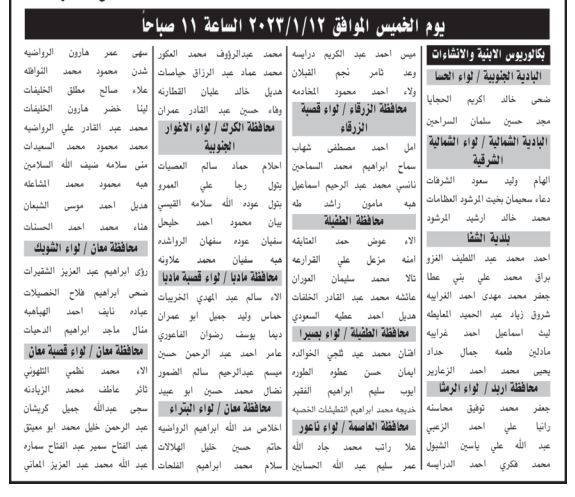 يوم الخميس الموافق ٢٠٢٣/١/١٢ الساعة ١١ صباحاً
بكالوريوس الابنية والانشاءات
البادية الجنوبية / لواء الحسا
ضحى خالد اكريم الحجايا
مجد حسين سلمان السراحين
البادية الشمالية / لواء الشمالية
الشرقية
الهام وليد سعود الشرفات
دعاء سحيمان بخيت المرشود العظامات
محمد خالد ارشيد المرشود
بلدية الشفا
احمد محمد عبد اللطيف الغزو
براق محمد علي بني عطا
جعفر محمد مهدي احمد الغرايبه
شروق زياد عبد الحميد المعايطه
ليث اسماعيل احمد غرايبه
مادلين طعمه جمال حداد
يحيى محمد احمد الزعارير
محافظة اربد / لواء الرمثا
جعفر محمد توفيق محاسنه
رانيا علي احمد الزعبي
عبد الله علي ياسين الشبول
محمد فكري احمد الدرايسه
ميس احمد عبد الكريم درايسه
وعد ثامر نجم القبلان
ولاء احمد محمود المخادمه
محافظة الزرقاء / لواء قصبة
الزرقاء
امل احمد مصطفى شهاب
سماح ابراهيم محمد السماحين
نانسي محمد عبد الرحيم اسماعيل
هبه مأمون راشد طه
محافظة الطفيلة
الاء عوض حمد العتايقه
امنه مزعل علي القرارعه
تالا محمد سليمان العوران
عائشه محمد عبد القادر الخلفات
هديل احمد عطيه السعودي
محافظة الطفيلة / لواء بصيرا
افنان محمد عبد ثلجي الخوالده
ايمان حسن عطوه الطوره
ايوب سليم ابراهيم الفقير
خديجه محمد ابراهيم القطيشات الخصبه
محافظة العاصمة / لواء ناعور
علا راتب محمد جاد الله
عمر سليم عبد الله الحسابين
محمد عبدالرؤوف محمد العكور
محمد عماد عبد الرزاق حياصات
هديل خالد عليان القطارنه
وفاء حسين عبد القادر عمران
محافظة الكرك / لواء الاغوار
الجنوبية
احلام حماد سالم العصيات
بتول رجا علي العمرو
بتول عوده الله سلامه القيسي
بيان محمود احمد خليحل
سفيان عوده سفهان الرواشده
هبه سفيان محمد علاونه
محافظة مادبا / لواء قصبة مادبا
الاء سالم عبد المهدي الخريبات
حماس وليد جميل ابو عمران
ديما يوسف رضوان الفاعوري
عامر احمد عبد الرحمن حسين
ميسم عبدالرحيم سالم الضمور
نضال محمد حسين ابو عبيد
محافظة معان / لواء البتراء
اخلاص مد الله ابراهيم الرواضيه
حاتم حسين خليل الهلالات
سلام محمد ابراهيم الفلحات
سهى عمر هارون الرواضيه
شدن محمود محمد النوافله
علاء صالح مطلق الخليفات
لينا خضر هارون الخليفات
محمد عبد القادر علي الرواضيه
محمد محمود محمد السعيدات
منى سلامه ضيف الله السلامين
هبه محمود محمد المشاعله
هديل احمد موسى الشبعان
هناء محمد احمد الحسنات
محافظة معان / لواء الشوبك
رؤى ابراهيم عبد العزيز الشقيرات
ضحى ابراهيم فلاح الخصيلات
عباده نايف احمد الهباهبه
منال ماجد ابراهيم الدحيات
محافظة معان / لواء قصبة معان
الاء محمد نظمي التلهوني
ثائر عاطف محمد الزيادنه
سجى عبدالله جميل كريشان
عبد الرحمن خليل محمد ابو معيتق
عبد الفتاح سمير عبد الفتاح سماره
عبد الله محمد عبد العزيز المعاني